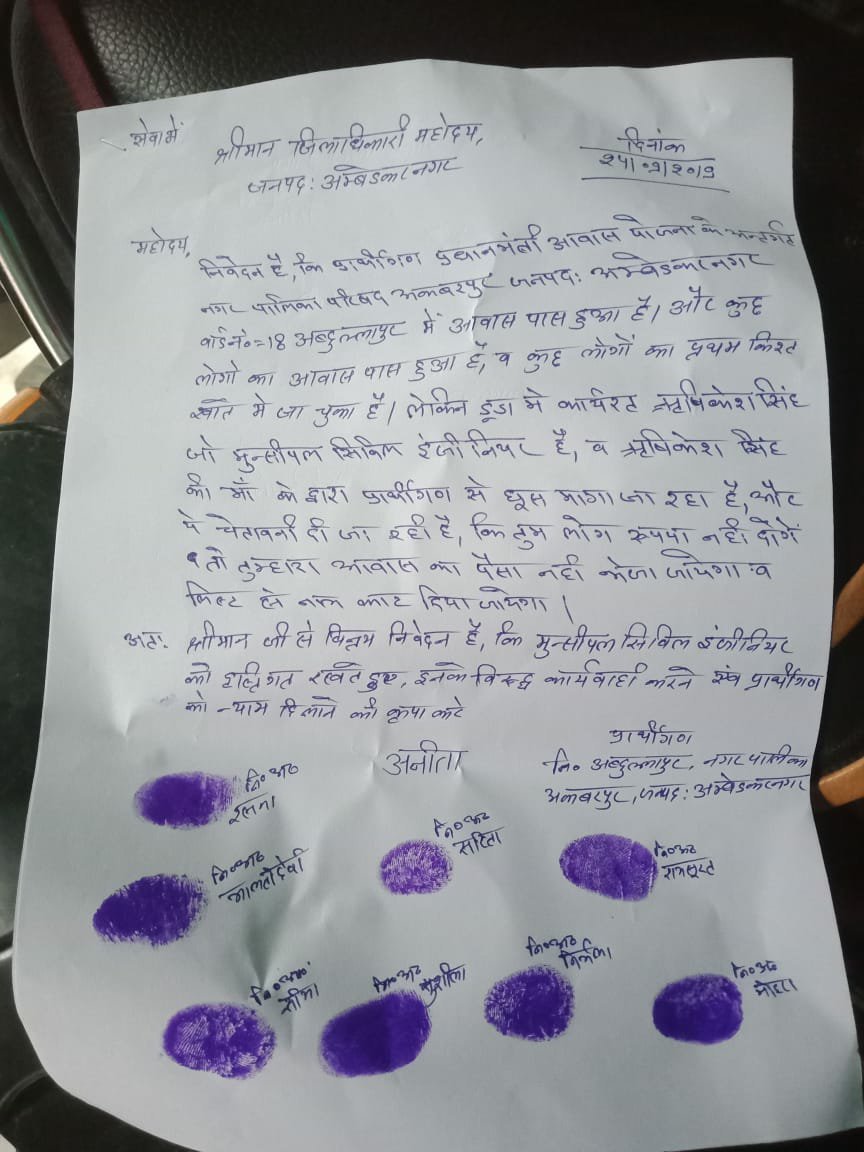 सेवा में
श्रीमान जिलाधिकारी महोदय,
जनपद: अम्बेडकरनगर
दिनांक
24/09/2019
महोदय,
निवेदन है, कि प्रार्थीगण प्रधानमंत्री आवास योजना के अन्तर्गत
नगर पालिका परिषद अकबरपुर जनपद: अम्बेडकरनगर
वार्ड नं०=18 अब्दुल्लापुर में आवास पास हुआ है। और कुछ
लोगो का आवास पास हुआ है, व कुछ लोगों का प्रथम किश्त
खाते मे जा चुका है। लेकिन डूडा मे कार्यरत ऋषिकेश सिंह
जो मुन्सीपल सिविल इंजीनियर है, व ऋषिकेश सिंह
की माँ के द्वारा प्रार्थीगण से घूस मागा जा रहा है, और
ये चेतावनी दी जा रही है, कि तुम लोग रूपया नही दोगें
तो तुम्हारा आवास का पैसा नही भेजा जायेगा व
लिस्ट से नाम काट दिया जायेगा।
अतः श्रीमान जी से विनम्र निवेदन है, कि मुन्सीपल सिविल इंजीनियर
को दृष्टिगत रखते हुए, इनके विरुद्ध कार्यवाही करने एंव प्रार्थीगण
को न्याय दिलाने की कृपा करे
प्रार्थीगण
नि० अब्दुल्लापुर, नगर पालिका
अकबरपुर, जनपद: अम्बेडकरनगर
अनीता
नि०अ०
नि०अ०
सरिता
नि०अ०
रामसूरत
नि०अ०
मालतीदेवी
नि०अ०
सीमा
नि०अ०
सुशीला
नि०अ०
निर्मला
नि०अ०